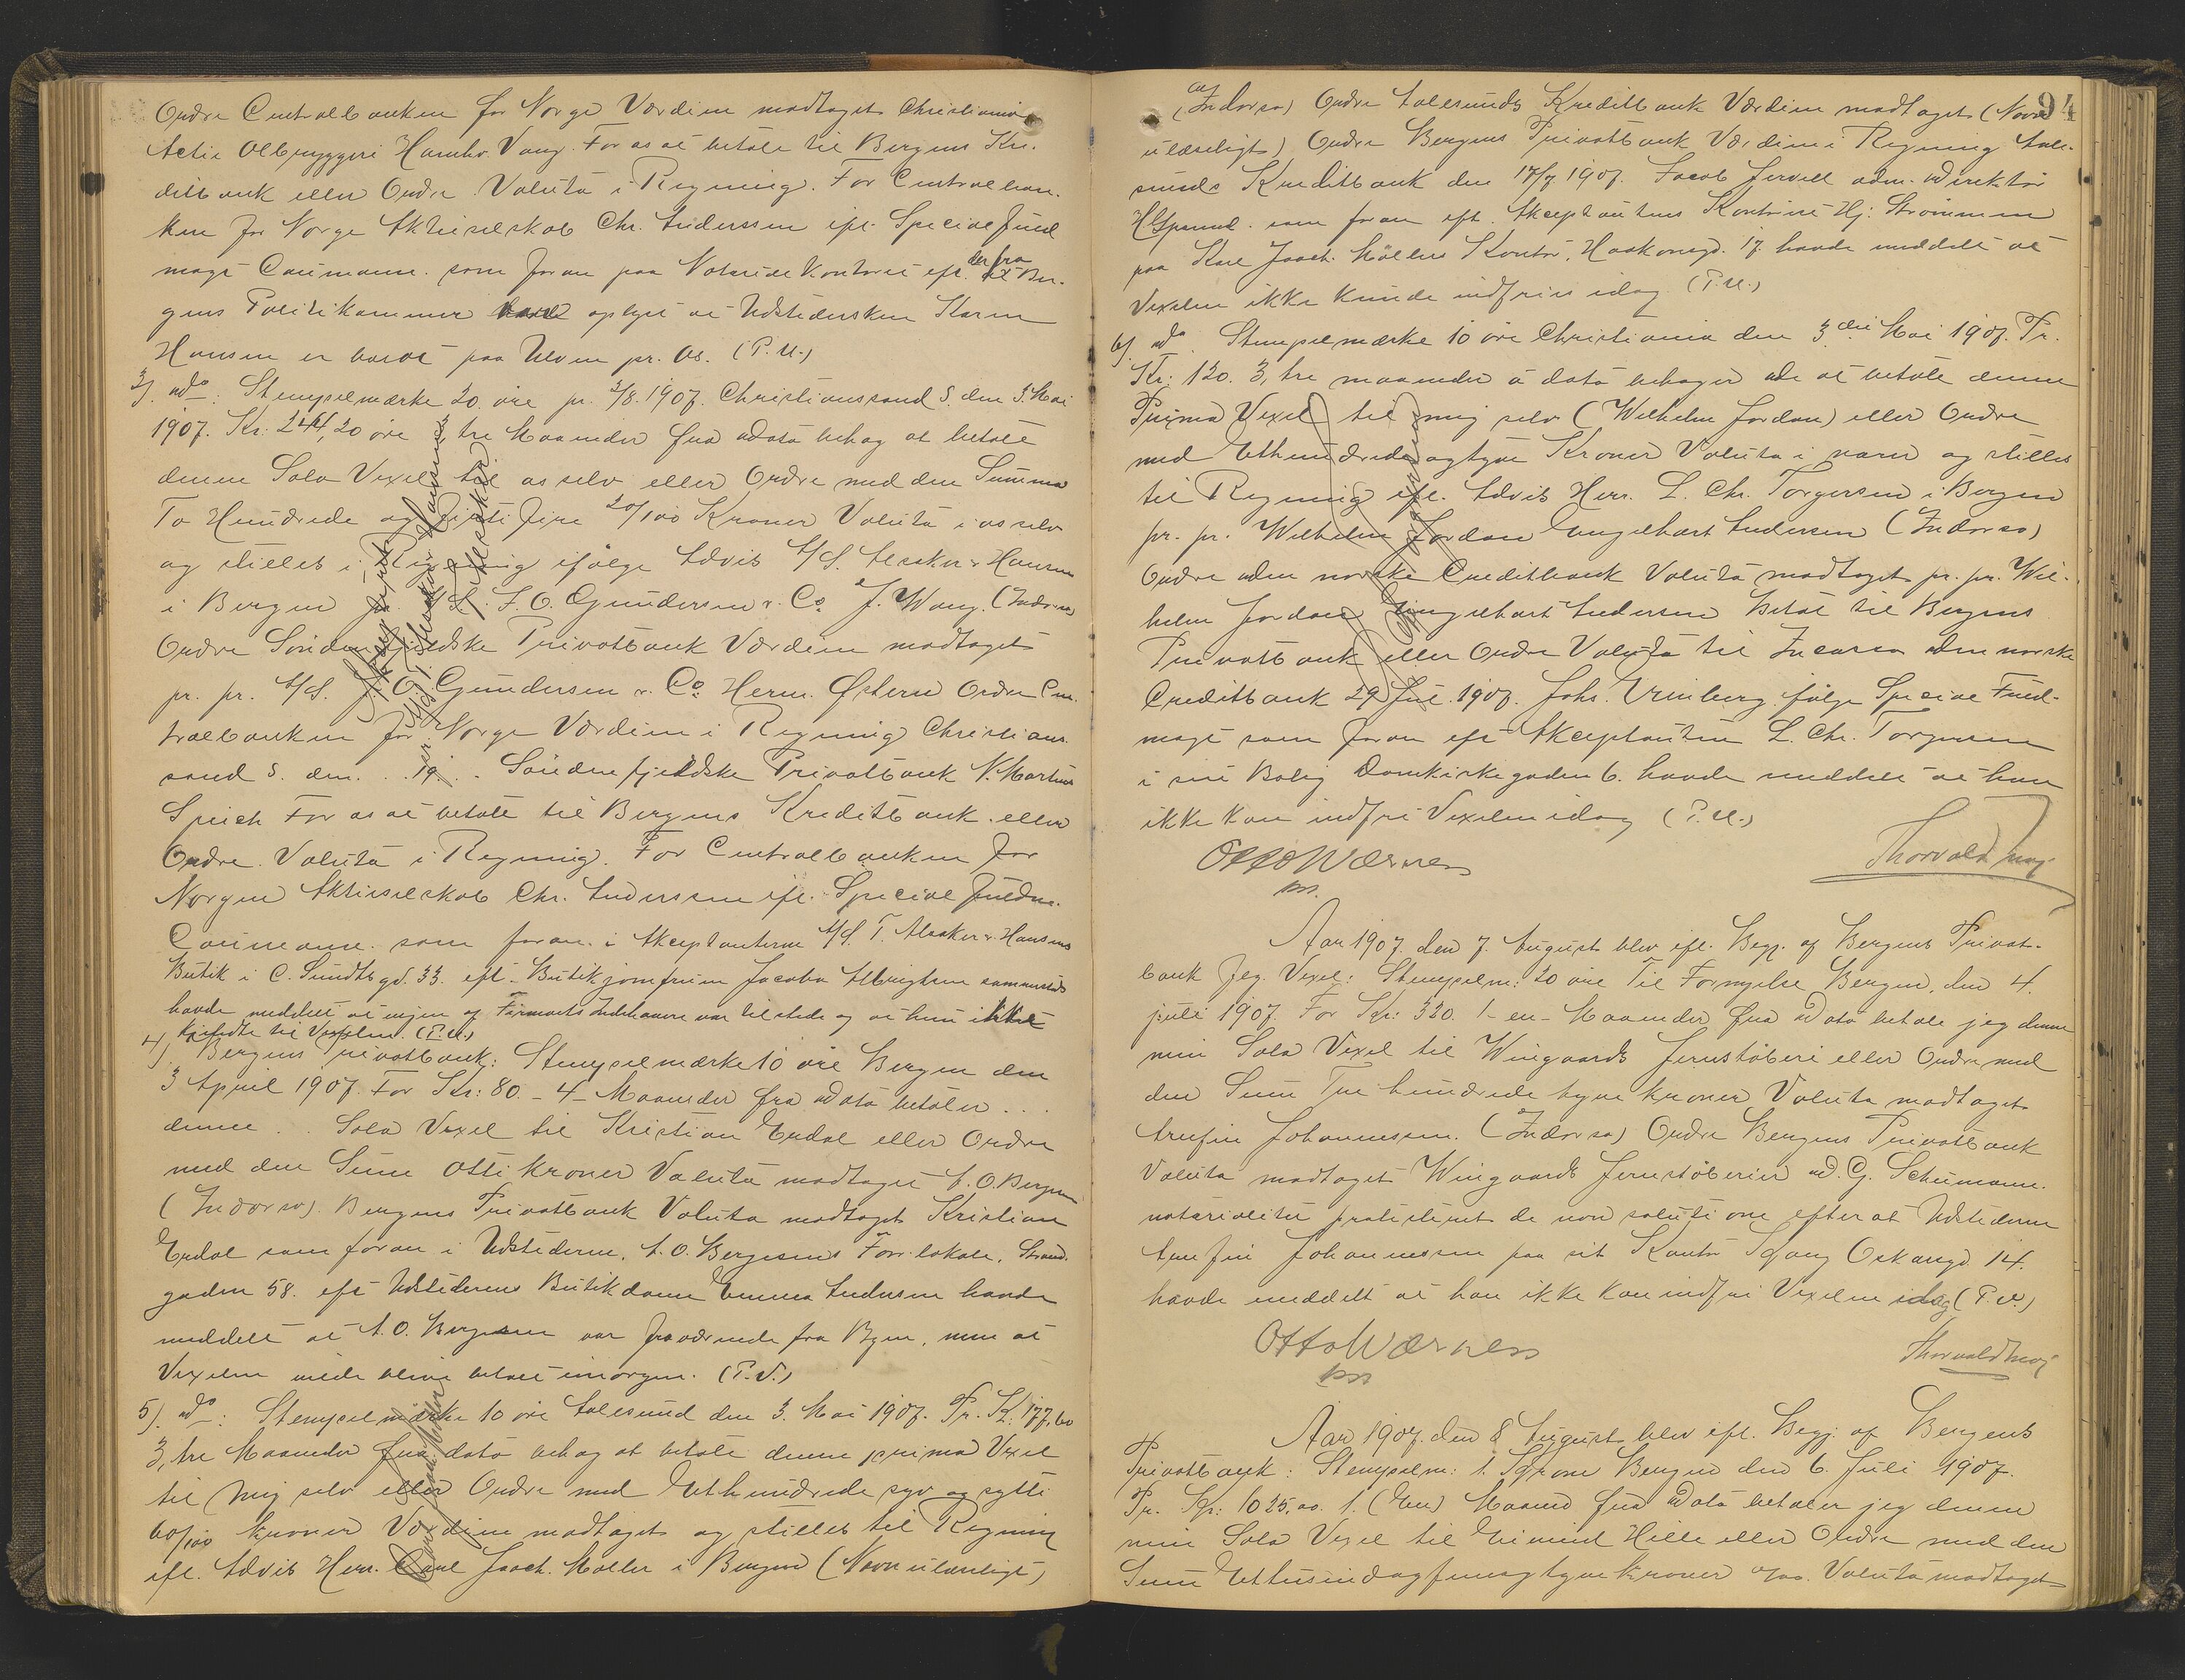 Ordre Centralbanken for Norge Værdien modtaget Christiania
Actie Ølbryggeri Hambr. Vang. For os at betale til Bergens Kre-
ditbank eller Ordre Valuta i Regning. For Centralban-
ken for Norge Aktieselskab Chr. Anderssen ifl. Special fuld
magt Caumanne. som foran paa Notarialkontoret eft. at der fra Ber-
gens Politikammer havde oplyst at Udstedersken Karen
Hansen er bosat paa Ulven pr. Os. (P.U.)
3) do: Stempelmærke 20 øre pr. 3/8.1907. Christianssand S. den 3. Mai
1907. Kr. 244,20 øre 3, tre Maaneder fra dato behag at betale
denne Sola Vexel til os selv eller Ordre med den Summa
To Hundrede og firti fire 20/100 Kroner Valuta i os selv
og stilles i Regning ifølge Advis A/S. Alsaker & Hansen
i Bergen pr. A/S. J.O. Gundersen & Co J. Wang. (Indorso
Ordre Søndenfjeldske Privatbank Værdien modtaget
pr. pr. A/S. J.O. Gundersen & Co. Herm. Østern Ordre Cen-
tralbanken for Norge Værdien i Regning Christians-
sand S. den .. 19 .. Søndenfjeldske Privatbank N. Martins
Speich For os at betale til Bergens Kreditbank eller
Ordre. Valuta i Regning. For Centralbanken for
Norgen Aktieselskab Chr. Anderssen ifl. Special fuldm.
Caumanne. som foran. i Akceptanterne A/S. T. Alsaker & Hansens
Butik i C. Sundtsgd. 33. eft. Butikjomfruen Jacoba Albrigtsen sammesteds
havde meddelt at ingen af Firmaets Indehavere var tilstede og at hun ikke
kjendte til Vexelen. (P.U.)
4) Bergens Privatbank: Stempelmærke 10 øre Bergen den
3 April 1907. For Kr: 80. - 4 - Maaneder fra Dato betaler ...
denne .. Sola Vexel til Kristian Endal eller Ordre
med den Sum Otti Kroner Valuta modtaget A.O. Bergesen
(Indorso). Bergens Privatbank Valuta modtaget Kristian
Endal som foran i Udstederen, A.O. Bergesens Forr. lokale, Strand-
gaden 58. eft Udstederens Butikdame Emma Andersen havde
meddelt at A.O. Bergesen var fraværende fra Byen, men at
Vexelen vilde blive betalt imorgen. (P.U.)
5) do: Stempelmærke 10 øre Aalesund den 3. Mai 1907. Pr. K: 177,60
3, tre Maaneder fra dato behag at betale denne prima Vexel
til mig selv eller Ordre med Ethundrede syv og sytti
60/100 Kroner Værdien modtaget og stilles til Regning
ifl. Advis Herr. Carl Joach. Møller i Bergen (Navn ulæseligt)
94
(Indorso) Ordre Aalesunds Kreditbank Værdien modtaget (Navn
ulæseligt) Ordre Bergens Privatbank Værdien i Regning Aale-
sunds Kreditbank den 17/7 1907. Jacob Jervell adm. Direktør
som foran eft. Akceptantens Kontorist Hj: Strømmen
paa Karl Joach. Møllers Kontor, Haakonsgd. 17. havde meddelt at
Vexelen ikke kunde indfries idag. (P.U.)
6) do. Stempelmærke 10 øre Christiania den 3die Mai 1907. Pr.
Kr: 120. 3, tre maaneder a dato behager De at betale denne
Prima Vexel til mig selv (Wilhelm Jordan) eller Ordre
med Ethundredeogtyve Kroner Valuta i varer og stilles
til Regning ifl. Advis Herr. L. Chr. Torgersen i Bergen
pr. pr. Wilhelm Jordan Engelhart Andersen (Indorso)
Ordre den norske Creditbank Valuta modtaget pr. pr. Wil-
helm Jordan Engelhart Andersen Betal til Bergens
Privatbank eller Ordre Valuta til Incasso den norske
Creditbank 29 Jul. 1907. Johs. Vrinberg. følge Special Fuld-
magt som foran eft Akceptanten L. Chr. Torgersen
i sin Bolig Domkirkegaden 6. havde meddelt at han
ikke kan indfri Vexelen idag (P.U.)
Otto Wærnes
Thorvald
Aar 1907. den 7. August blev ifl. Begj. af Bergens Privat-
bank fig. Vexel: Stempelm: 20 øre Til Fornyelse Bergen, den 4.
juli 1907. For Kr: 320. 1 - en - Maaneder fra Dato betale jeg denne
min Sola Vexel til Wingaards Jernstøberi eller Ordre med
den Sum Tre hundrede tyve kroner Valuta modtaget
Arnfin Johannessen. (Indorso) Ordre Bergens Privatbank
Valuta modtaget Wingaards Jernstøberier ad. G. Schumann.
notarialiter protesteret de non solutione efter at Udstederen
Arnfin Johannessen paa sit Kontor Kong Oskarsgd. 14.
havde meddelt at han ikke kan indfri Vexelen idag (P.U.)
Otto Wærnes
Thorvald
Aar 1907. den 8 August blev ifl. Begj. af Bergens
Privatbank: Stempelm: 1. Krone Bergen den 6. Juli 1907.
Pr. Kr: 1025,00. 1. (En) Maaned fra Dato betaler jeg denne
min Sola Vexel til Eimind Hille eller Ordre med den
Sum Ettusindogfemogtyve kroner 0/00. Valuta modtaget